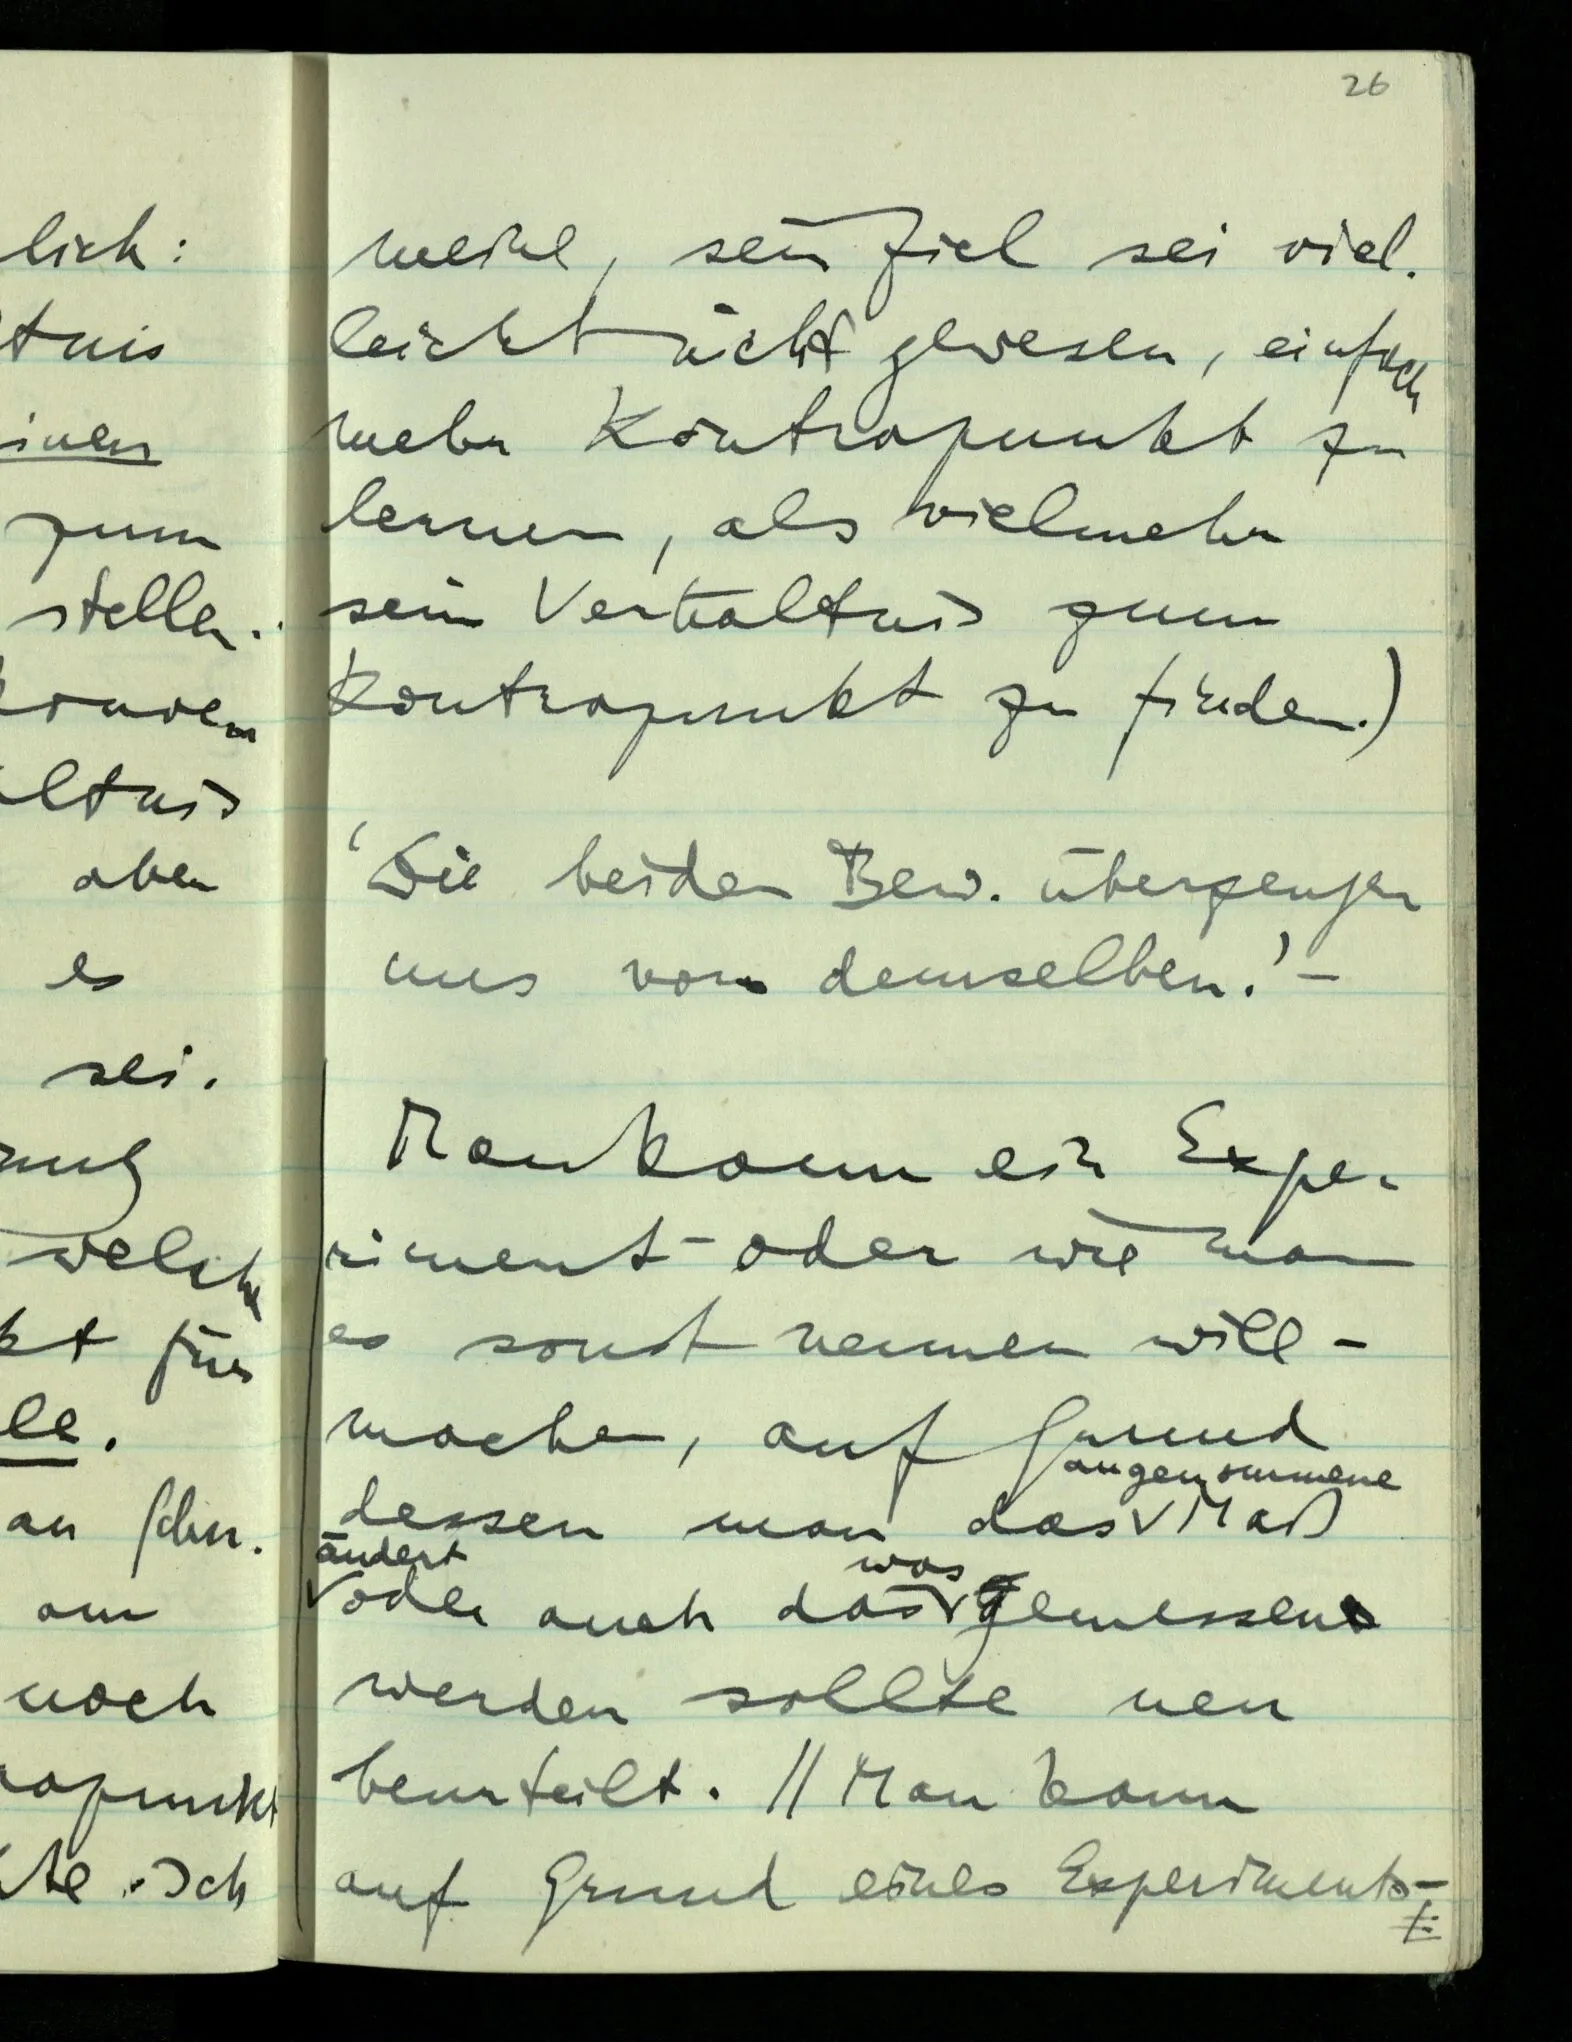 lich:
tnis
inen
zum
stellen.
aber
es
sei.
welche
kt für
le.
an Schu.
am
noch
rapunkt
te. Ich
26
meine, sein Ziel sei viel-
leicht nicht gewesen, einfach
mehr Kontrapunkt zu
lernen, als vielmehr
sein Verhältnis zum
Kontrapunkt zu finden.)
'Die beiden Bew. überzeugen
uns von demselben.' –
Man kann ein Expe-
riment – oder wie man
es sonst nennen will –
machen, auf Grund
angenommene
dessen man das ∨ Maß
ändert was
∨ oder auch das ∨ gemessen
werden sollte neu
beurteilt. // Man kann
auf Grund eines Experiments –